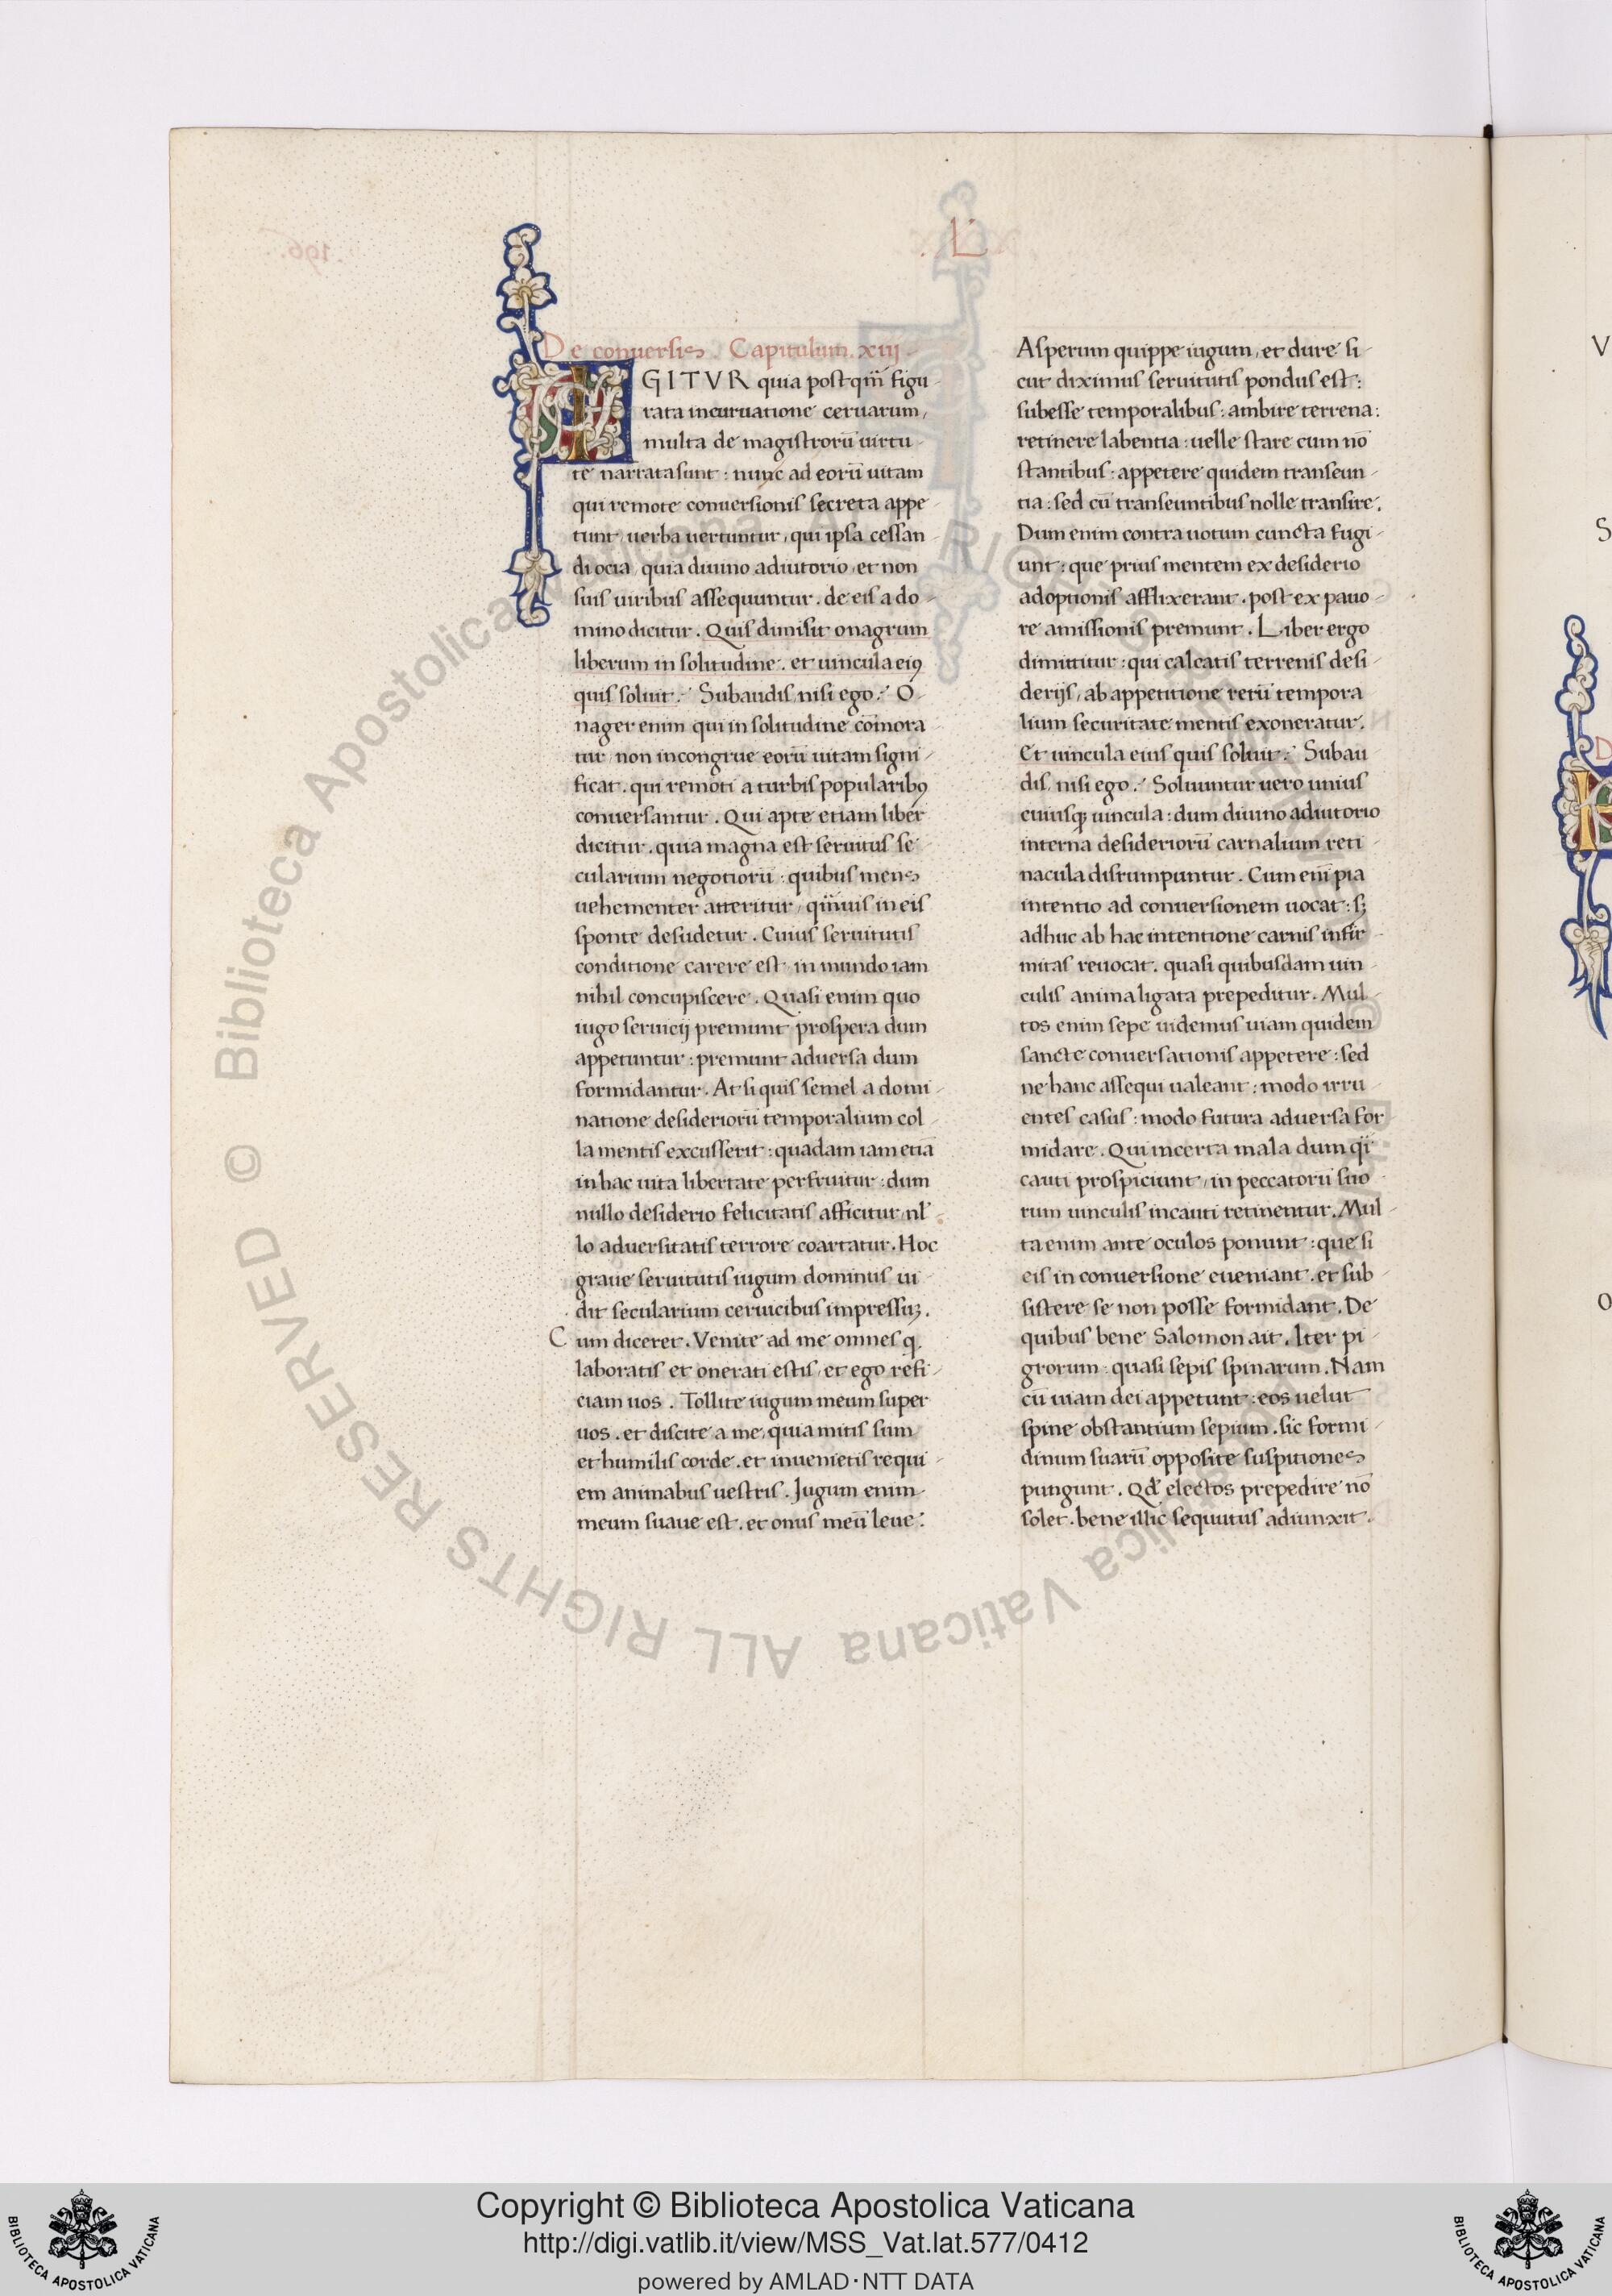 .L.
De conuersis. Capitulum. xiij
IGITVR quia postqm̄ figu
rata incuruatione ceruarum,
multa de magistrorū uirtu
te narrata sunt : nunc ad eorū uitam
qui remote conuersionis secreta appe
tunt uerba uertuntur, qui ipsa cessan
di ocia, quia diuino adiutorio, et non
suis uiribus assequuntur. de eis a do
mino dicitur. Quis dimisit onagrum
liberum in solitudine. et uincula eiꝰ
quis soluit. Subaudis, nisi ego. O
nager enim qui in solitudine cōmora
tur, non incongrue eorū uitam signi
ficat. qui remoti a turbis popularibꝰ
conuersantur. Qui apte etiam liber
dicitur. quia magna est seruitus se
cularium negotiorū : quibus mens
uehementer atteritur, qm̄uis in eis
sponte desudetur. Cuius seruitutis
conditione carere est, in mundo iam
nihil concupiscere. Quasi enim quo
iugo seruicij premunt prospera dum
appetuntur : premunt aduersa dum
formidantur. At si quis semel a domi
natione desideriorū temporalium col
la mentis excusserit : quadam iam etiā
in hac uita libertate perfruitur : dum
nullo desiderio felicitatis afficitur, nl̄
lo aduersitatis terrore coartatur. Hoc
graue seruitutis iugum dominus ui
dit secularium ceruicibus impressuʒ.
Cum diceret. Venite ad me omnes q̣
laboratis et onerati estis, et ego refi
ciam uos. Tollite iugum meum super
uos. et discite a me, quia mitis sum
et humilis corde. et inuenietis requi
em animabus uestris. Jugum enim
meum suaue est. et onus meū leue.
Asperum quippe iugum, et dure si
cut diximus seruitutis pondus est :
subesse temporalibus : ambire terrena :
retinere labentia : uelle stare cum nō
stantibus : appetere quidem transeun
tia : sed cū transeuntibus nolle transire.
Dum enim contra uotum cuncta fugi
unt : que prius mentem ex desiderio
adoptionis afflixerant. post ex pauo
re amissionis premunt. Liber ergo
dimittitur : qui calcatis terrenis desi
derijs, ab appetitione rerū tempora
lium securitate mentis exoneratur.
Et uincula eius quis soluit. Subau
dis, nisi ego. Soluuntur uero unius
cuiusqꝫ uincula : dum diuino adiutorio
interna desideriorū carnalium reti
nacula disrumpuntur. Cum eni̅ pia
intentio ad conuersionem uocat : sꝫ
adhuc ab hac intentione carnis infir
mitas reuocat. quasi quibusdam uin
culis anima ligata prepeditur. Mul
tos enim sepe uidemus uiam quidem
sancte conuersationis appetere : sed
ne hanc assequi ualeant : modo irru
entes casus : modo futura aduersa for
midare. Qui incerta mala dum qi̅
cauti prospiciunt, in peccatorū suo
rum uinculis incauti retinentur. Mul
ta enim ante oculos ponunt : que si
eis in conuersione eueniant. et sub
sistere se non posse formidant. De
quibus bene Salomon ait. Iter pi
grorum : quasi sepis spinarum. Nam
cū uiam dei appetunt : eos uelut
spine obstantium sepium. sic formi
dinum suarū opposite suspitiones
pungunt. Qd̄ electos prepedire nō
solet. bene illic sequutus adiunxit.
Copyright © Biblioteca Apostolica Vaticana
http://digi.vatlib.it/view/MSS_Vat.lat.577/0412
powered by AMLAD·NTT DATA
BIBLIOTECA APOSTOLICA VATICANA
BIBLIOTECA APOSTOLICA VATICANA
© Biblioteca Apostolica Vaticana ALL RIGHTS RESERVED